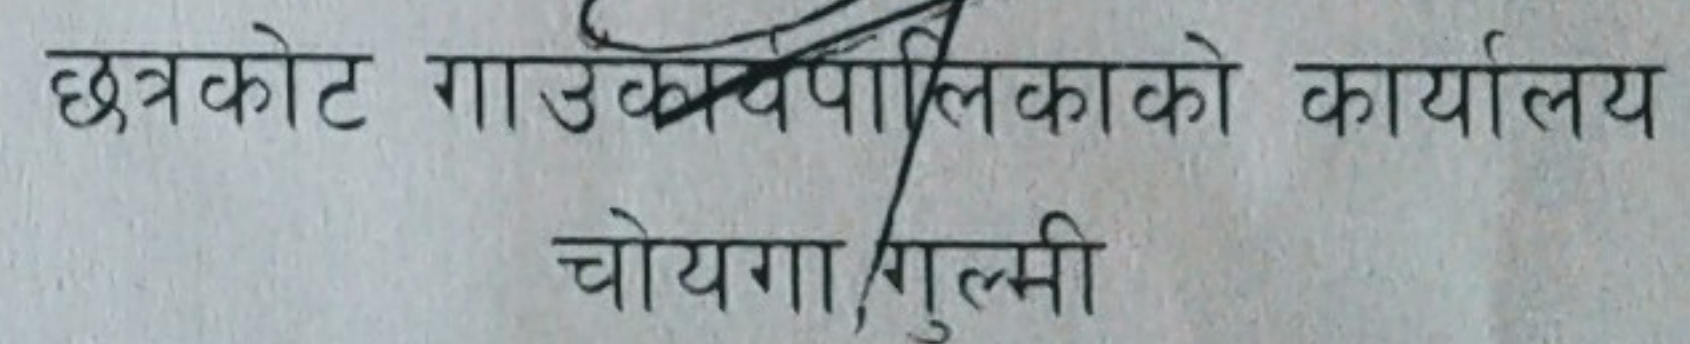 छत्रकोट गाउकार्यपालिकाको कार्यालय
चोयगा,गुल्मी